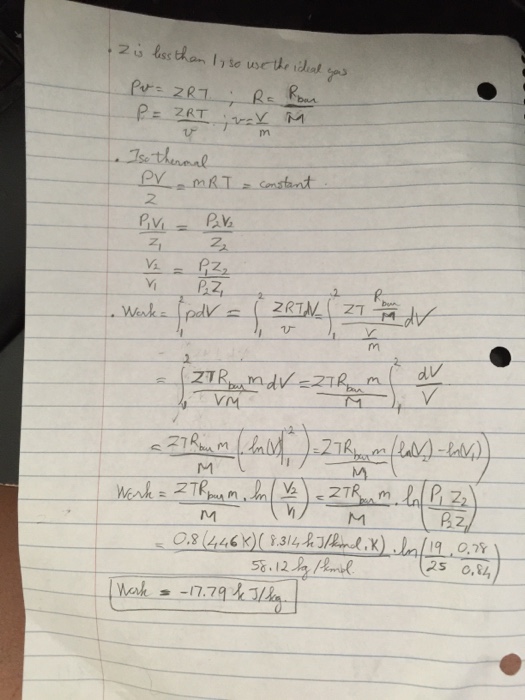 . Z is less than 1, so use the ideal gas
Pv = ZRT ; R = Rbar/M
P = ZRT/v ; v = V/m
. Isothermal
PV/Z = mRT = constant
P₁V₁/Z₁ = P₂V₂/Z₂
V₂/V₁ = P₁Z₂/P₂Z₁
. Work = ∫₁² pdV = ∫₁² ZRT/v dV = ∫₁² ZT (Rbar/M)/(V/m) dV
= ∫₁² ZTRbar m dV/VM = ZTRbar m/M ∫₁² dV/V
= ZTRbar m/M (ln(V)|₁²) = ZTRbar m/M (ln(V₂) - ln(V₁))
Work = ZTRbar m/M . ln(V₂/V₁) = ZTRbar m/M . ln(P₁Z₂/P₂Z₁)
= 0.8(446K)(8.314 kJ/kmol.K)/58.12 kg/kmol . ln(19/25 . 0.78/0.84)
Work = -17.79 kJ/kg.